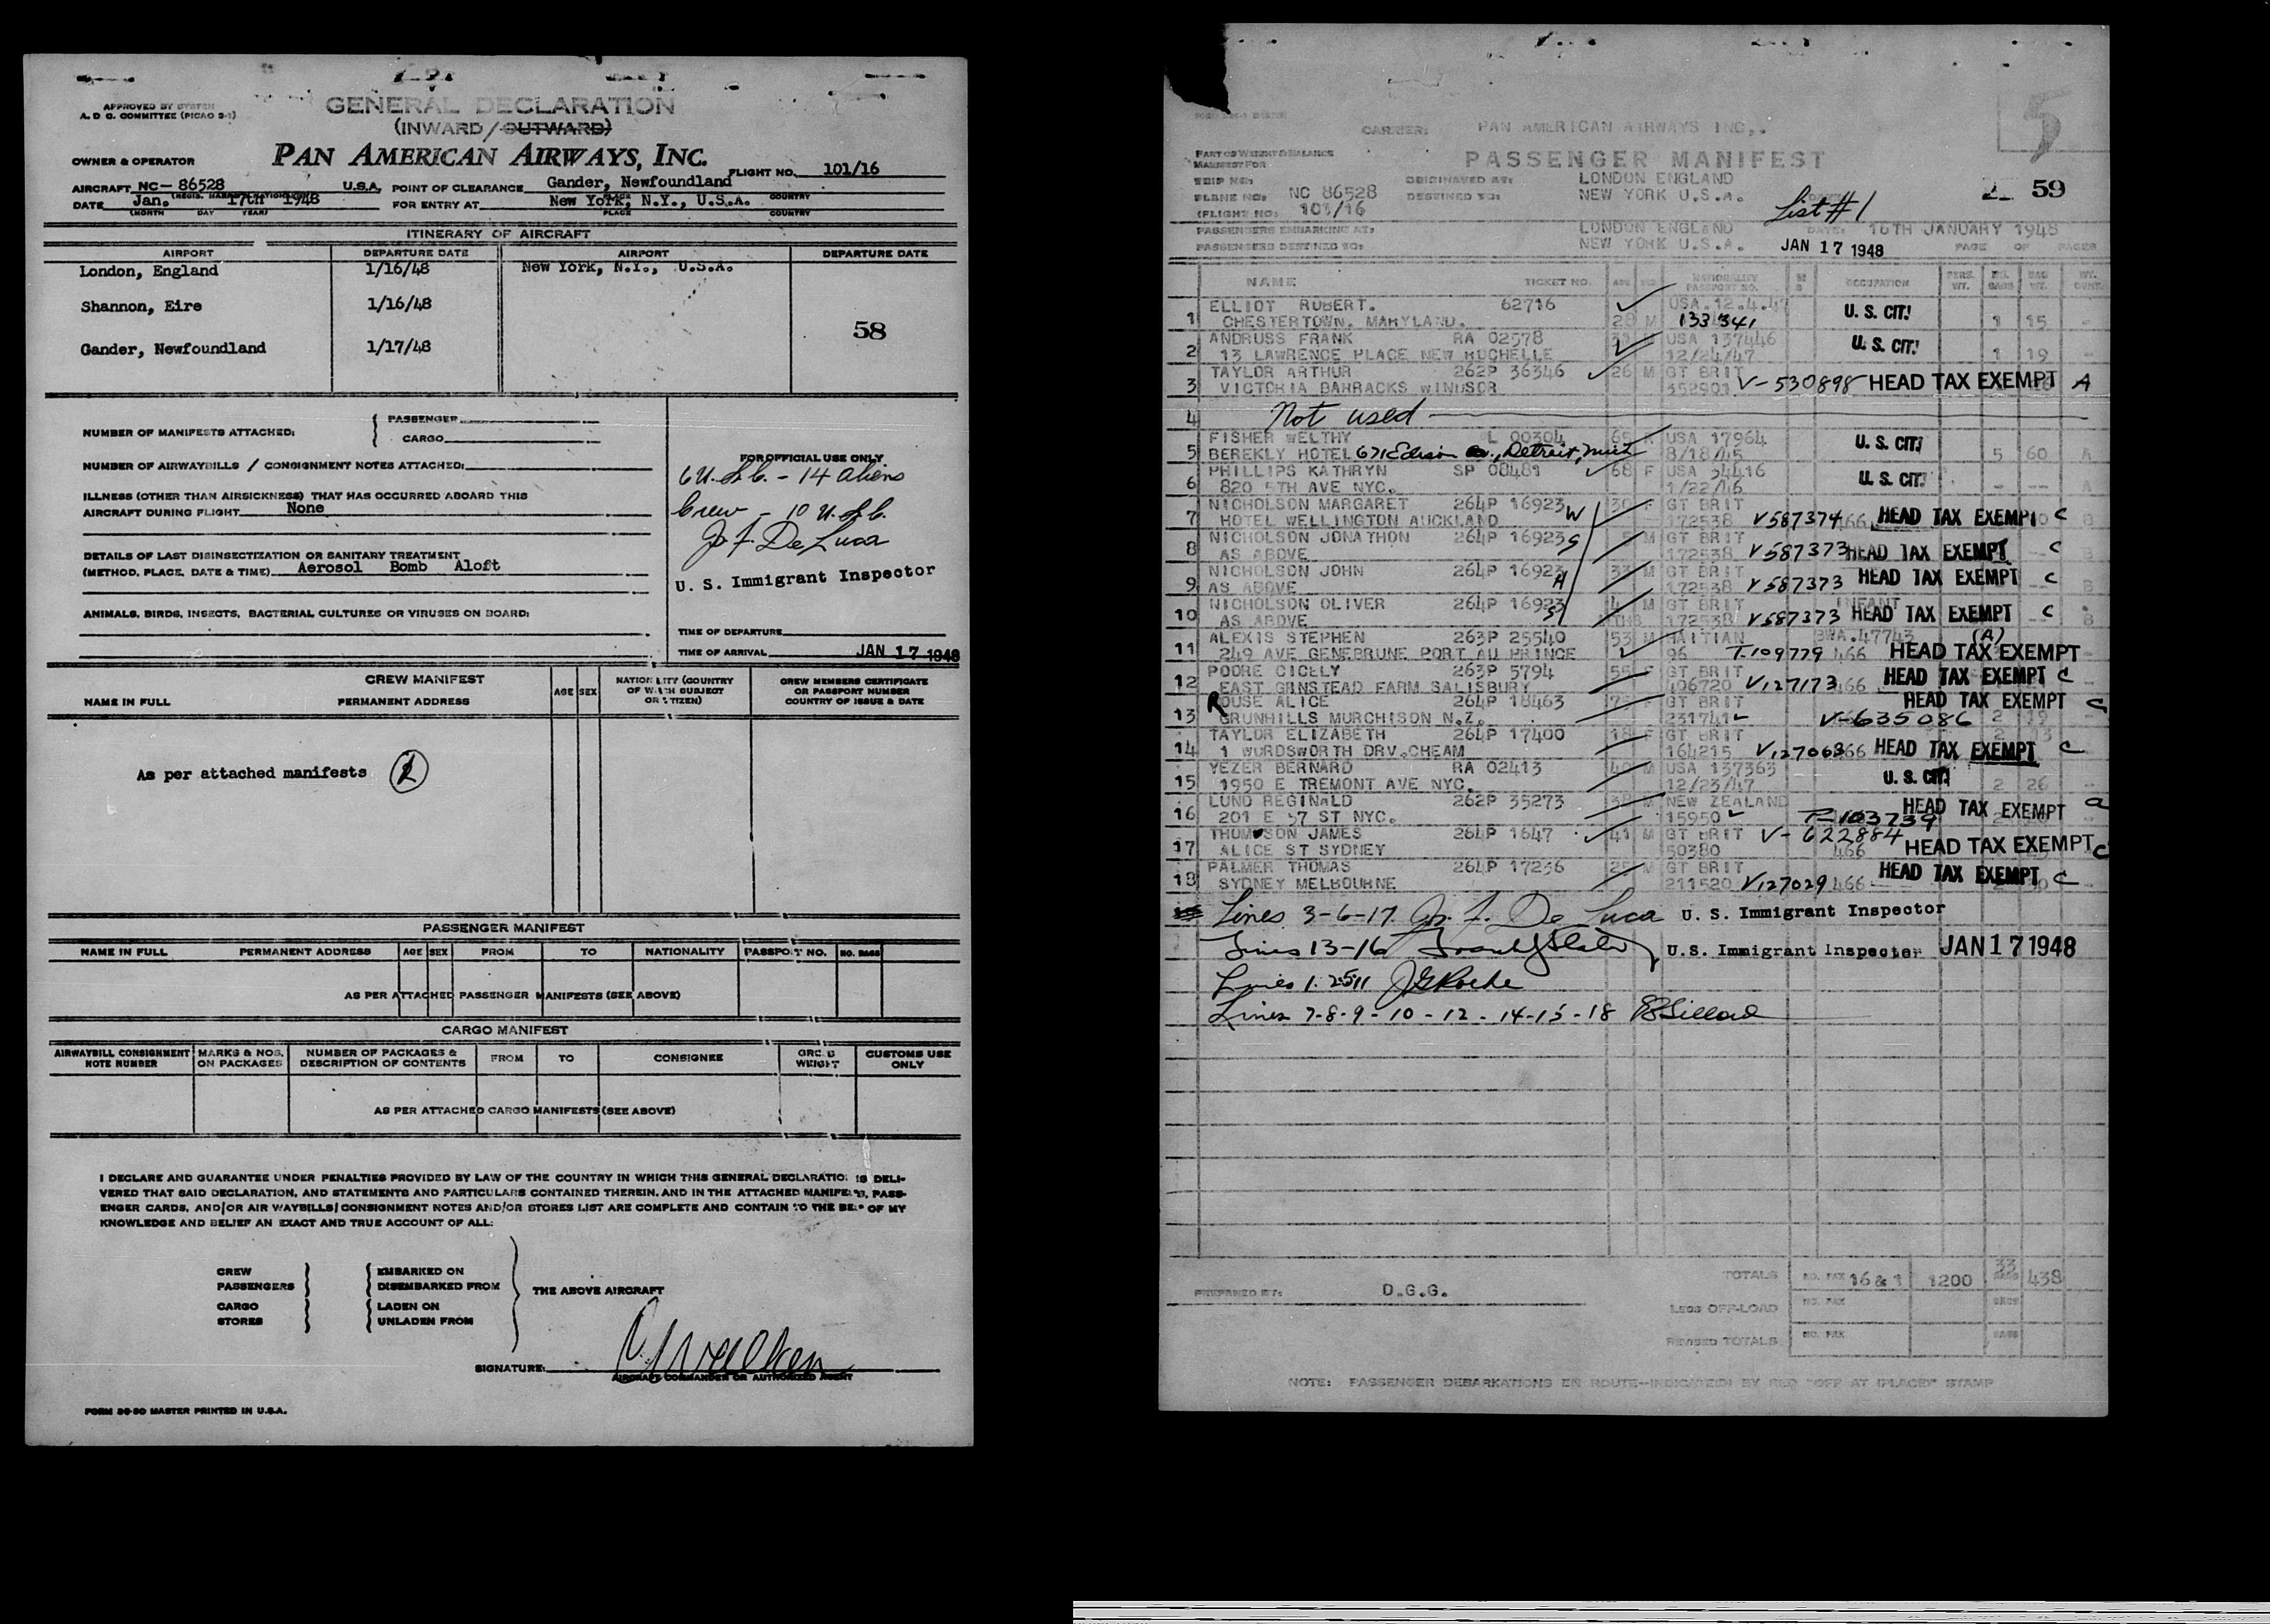 APPROVED BY SYSTEM
A. D C. COMMITTEE (PICAO 2-1)
GENERAL DECLARATION
(INWARD/OUTWARD)
OWNER & OPERATOR
PAN AMERICAN AIRWAYS, INC.
FLIGHT NO. 101/16
AIRCRAFT NC- 86528 U.S.A. POINT OF CLEARANCE Gander, Newfoundland
DATE Jan. 17th 1948 FOR ENTRY AT New York, N.Y., U.S.A.
(MONTH DAY YEAR) PLACE COUNTRY
ITINERARY OF AIRCRAFT
AIRPORT DEPARTURE DATE AIRPORT DEPARTURE DATE
London, England 1/16/48 New York, N.Y., U.S.A.
Shannon, Eire 1/16/48
58
Gander, Newfoundland 1/17/48
NUMBER OF MANIFESTS ATTACHED: PASSENGER
CARGO
NUMBER OF AIRWAYBILLS / CONSIGNMENT NOTES ATTACHED:
ILLNESS (OTHER THAN AIRSICKNESS) THAT HAS OCCURRED ABOARD THIS
AIRCRAFT DURING FLIGHT None
DETAILS OF LAST DISINSECTIZATION OR SANITARY TREATMENT
(METHOD, PLACE, DATE & TIME) Aerosol Bomb Aloft
ANIMALS, BIRDS, INSECTS, BACTERIAL CULTURES OR VIRUSES ON BOARD:
FOR OFFICIAL USE ONLY
6 U.S.C. - 14 aliens
Crew - 10 U.S.C.
Jo. F. De Luca
U. S. Immigrant Inspector
TIME OF DEPARTURE
TIME OF ARRIVAL JAN 17 1948
CREW MANIFEST
NAME IN FULL PERMANENT ADDRESS AGE SEX NATIONALITY (COUNTRY OF WHICH SUBJECT OR CITIZEN) CREW MEMBERS CERTIFICATE OR PASSPORT NUMBER COUNTRY OF ISSUE & DATE
As per attached manifests
PASSENGER MANIFEST
NAME IN FULL PERMANENT ADDRESS AGE SEX FROM TO NATIONALITY PASSPORT NO. NO. BAGS
AS PER ATTACHED PASSENGER MANIFESTS (SEE ABOVE)
CARGO MANIFEST
AIRWAYBILL CONSIGNMENT NOTE NUMBER MARKS & NOS. ON PACKAGES NUMBER OF PACKAGES & DESCRIPTION OF CONTENTS FROM TO CONSIGNEE GROSS WEIGHT CUSTOMS USE ONLY
AS PER ATTACHED CARGO MANIFESTS (SEE ABOVE)
I DECLARE AND GUARANTEE UNDER PENALTIES PROVIDED BY LAW OF THE COUNTRY IN WHICH THIS GENERAL DECLARATION IS DELI-
VERED THAT SAID DECLARATION, AND STATEMENTS AND PARTICULARS CONTAINED THEREIN, AND IN THE ATTACHED MANIFESTS, PASS-
ENGER CARDS, AND/OR AIR WAYBILLS/CONSIGNMENT NOTES AND/OR STORES LIST ARE COMPLETE AND CONTAIN TO THE BEST OF MY
KNOWLEDGE AND BELIEF AN EXACT AND TRUE ACCOUNT OF ALL:
CREW EMBARKED ON
PASSENGERS DISEMBARKED FROM THE ABOVE AIRCRAFT
CARGO LADEN ON
STORES UNLADEN FROM
SIGNATURE:
AIRCRAFT COMMANDER OR AUTHORIZED AGENT
FORM 30-50 MASTER PRINTED IN U.S.A.
5
CARRIER: PAN AMERICAN AIRWAYS INC,.
PART OF WEIGHT & BALANCE
MANIFEST FOR
PASSENGER MANIFEST
TRIP NO: ORIGINATED AT: LONDON ENGLAND
PLANE NO: NC 86528 DESTINED TO: NEW YORK U.S.A. 59
(FLIGHT NO: 101/16 List #1
PASSENGERS EMBARKING AT: LONDON ENGLAND DATE: 16TH JANUARY 1948
PASSENGERS DESTINED TO: NEW YORK U.S.A. JAN 17 1948 PAGE OF PAGES
NAME TICKET NO. AGE SEX NATIONALITY PASSPORT NO. OCCUPATION PERS. WT. NO. BAGS BAG WT.
ELLIOT ROBERT. 62716 USA.12.4.47
1 CHESTERTOWN. MARYLAND. M 133341 U. S. CIT. 1 15
ANDRUSS FRANK RA 02578 USA 137446
2 13 LAWRENCE PLACE NEW ROCHELLE 12/24/47 U. S. CIT. 1 19
TAYLOR ARTHUR 262P 36346 26 M GT BRIT
3 VICTORIA BARRACKS WINDSOR 352901 V-530898 HEAD TAX EXEMPT A
4 Not used
FISHER WELTHY L 00304 USA 17964
5 BEREKLY HOTEL 671 Edison Detroit, Mich 8/18/45 U. S. CIT. 5 60 A
PHILLIPS KATHRYN SP 08481 68 F USA 34416
6 820 5TH AVE NYC. 1/22/46 U. S. CIT. A
NICHOLSON MARGARET 264P 16923 W 30 F GT BRIT
7 HOTEL WELLINGTON AUCKLAND 172538 V587374 466 HEAD TAX EXEMPT C
NICHOLSON JONATHON 264P 16923 S M GT BRIT
8 AS ABOVE 172538 V587373 HEAD TAX EXEMPT C
NICHOLSON JOHN 264P 16923 H 33 M GT BRIT
9 AS ABOVE 172538 V587373 HEAD TAX EXEMPT C
NICHOLSON OLIVER 264P 16923 S M GT BRIT INFANT
10 AS ABOVE 172538 V587373 HEAD TAX EXEMPT C
ALEXIS STEPHEN 263P 25540 53 M HAITIAN BWA.47743 (A)
11 249 AVE GENEBRUNE PORT AU PRINCE 96 T-109779 466 HEAD TAX EXEMPT
POORE CICELY 263P 5794 55 F GT BRIT
12 EAST GRNSTEAD FARM SALISBURY 406720 V127173 466 HEAD TAX EXEMPT C
ROUSE ALICE 264P 18463 F GT BRIT HEAD TAX EXEMPT C
13 GRUNHILLS MURCHISON N.Z. 231741 V-635086 2 19
TAYLOR ELIZABETH 264P 17400 18 F GT BRIT
14 1 WORDSWORTH DRV.CHEAM 164215 V127063 466 HEAD TAX EXEMPT C
YEZER BERNARD RA 02413 M USA 137363
15 1950 E TREMONT AVE NYC. 12/23/47 U. S. CIT. 2 26
LUND REGINALD 262P 35273 M NEW ZEALAND HEAD TAX EXEMPT a
16 201 E 57 ST NYC. 15950 T-103739
THOMSON JAMES 264P 1647 41 M GT BRIT V-622884
17 ALICE ST SYDNEY 50380 466 HEAD TAX EXEMPT C
PALMER THOMAS 264P 17256 M GT BRIT
18 SYDNEY MELBOURNE 211520 V127029 466 HEAD TAX EXEMPT C
Lines 3-6-17 Jo. F. De Luca U. S. Immigrant Inspector
Lines 13-16 U.S. Immigrant Inspector JAN 17 1948
Lines 1-2-5-11 J G Roche
Lines 7-8-9-10-12-14-15-18
TOTALS NO. PAX 16 & 1 1200 33 BAGS 438
PREPARED BY: D.G.G.
LESS OFF-LOAD NO. PAX BAGS
REVISED TOTALS NO. PAX BAGS
NOTE: PASSENGER DEBARKATIONS EN ROUTE—INDICATED BY RED "OFF AT (PLACE)" STAMP